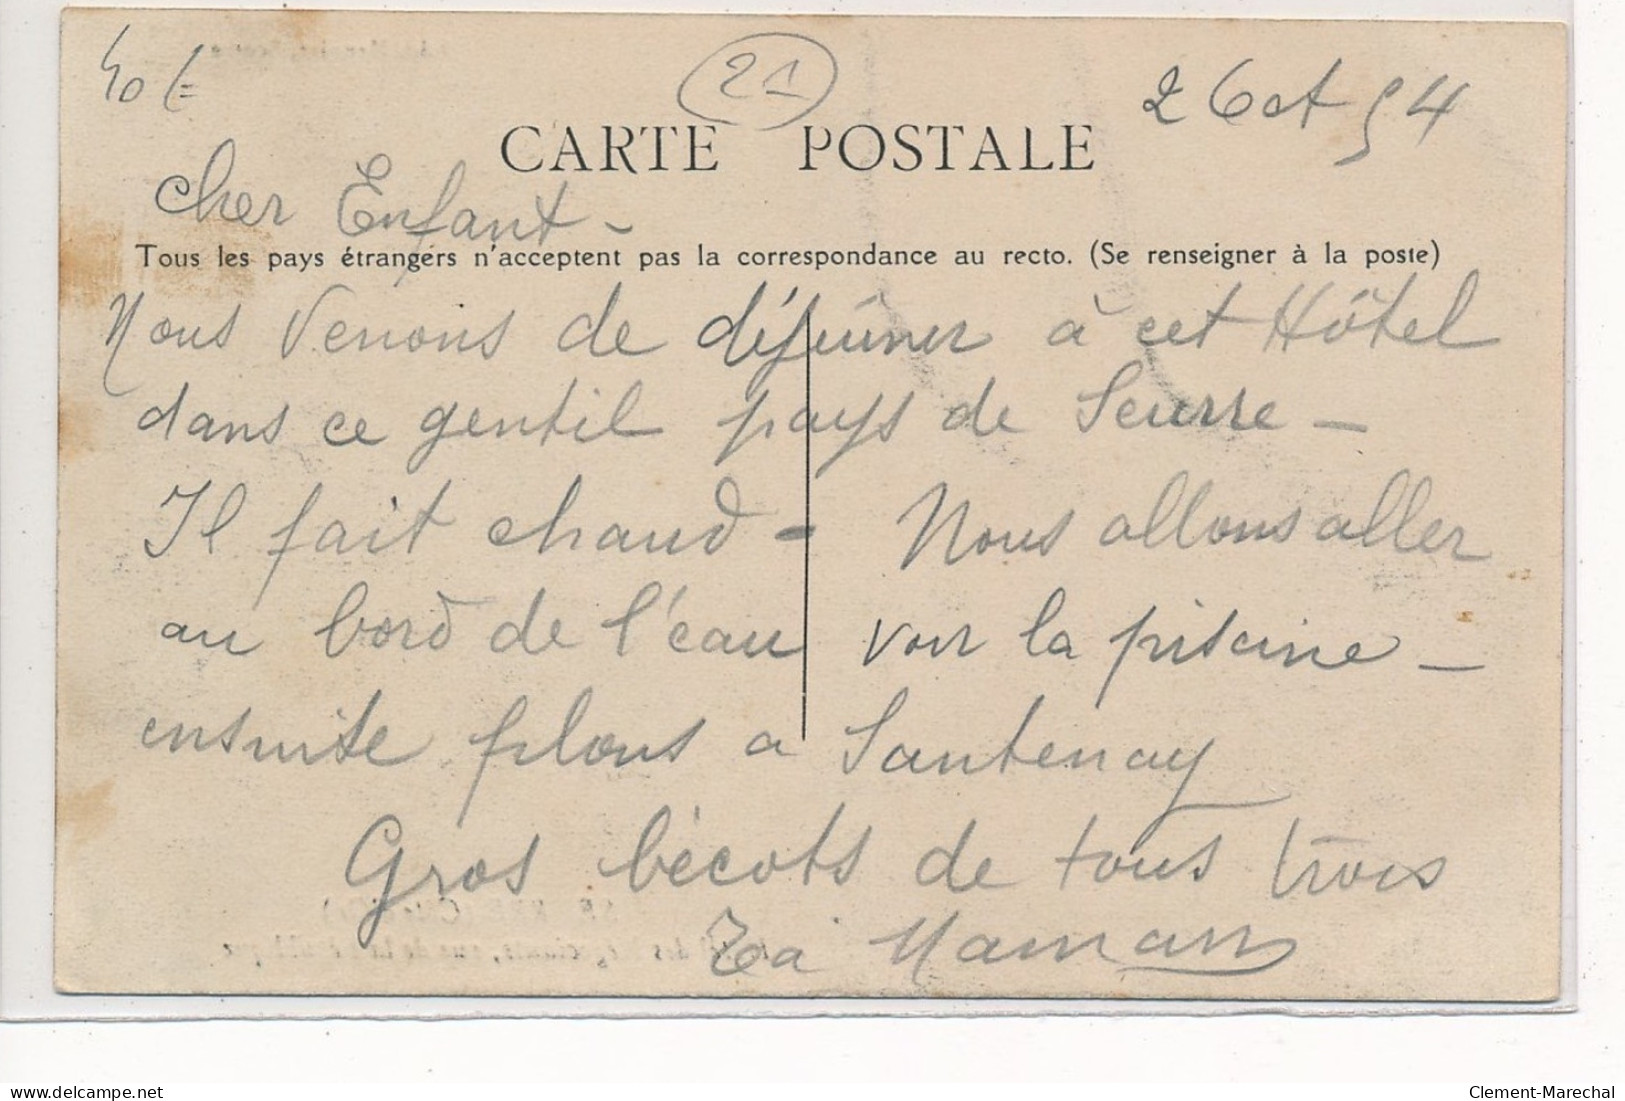 40 €
21
2 Oct 54
CARTE POSTALE
Cher Enfant -
Tous les pays étrangers n'acceptent pas la correspondance au recto. (Se renseigner à la poste)
Nous venons de déjeuner à cet Hôtel
dans ce gentil pays de Seurre -
Il fait chaud - Nous allons aller
au bord de l'eau voir la piscine -
ensuite filons a Santenay
Gros bécots de tous trois
Ta Maman
delcampe.net
Clement-Marechal